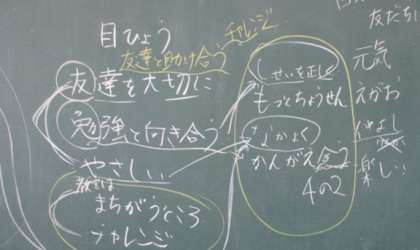 目ひょう
友達と助け合う
チャレンジ
友達を大切に
勉強と向き合う
やさしい
教室は
まちがうところ
チャレンジ
しせいを正しく
もっとちょうせん
なかよく
かんがえ合う
4の2
友だち
元気
えがお
仲よし
楽しい